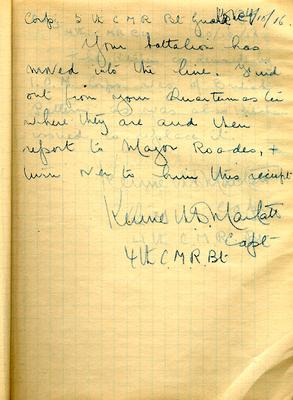 Corp. 5th C M R Bt Guard 4/10/16.
Your battalion has
moved into the line. Find
out from your Quartermaster
where they are and then
report to Major Roades, +
turn over to him this receipt
Capt
4th C.M.R. Bt